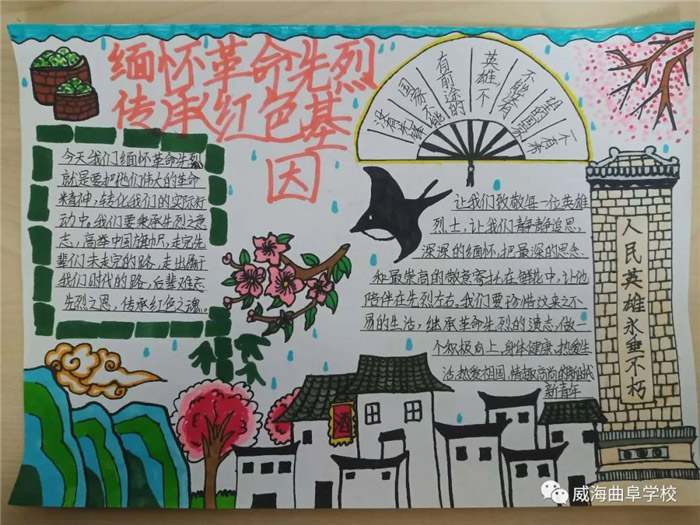 缅怀革命先烈
传承红色基
因
不能没有
英雄不
有前途的
国家不能
没有先锋
今天我们缅怀革命先烈
就是要把他们伟大的生命
精神，转化我们的实际行
动中，我们要秉承先烈之意
志，高举中国旗帜，走完先
辈们未走完的路，走出属于
我们时代的路，后辈难忘
先烈之恩，传承红色之魂。
让我们致敬每一位英雄
烈士，让我们静静追思，
深深的缅怀，把最深的思念
和最崇高的敬意寄托在鲜花中，让他
陪伴在先烈左右。我们要珍惜这来之不
易的生活，继承革命先烈的遗志，做一
个积极向上，身体健康，热爱生
活，热爱祖国，情趣高尚的新时代
新青年
人民英雄永垂不朽
酒
威海曲阜学校